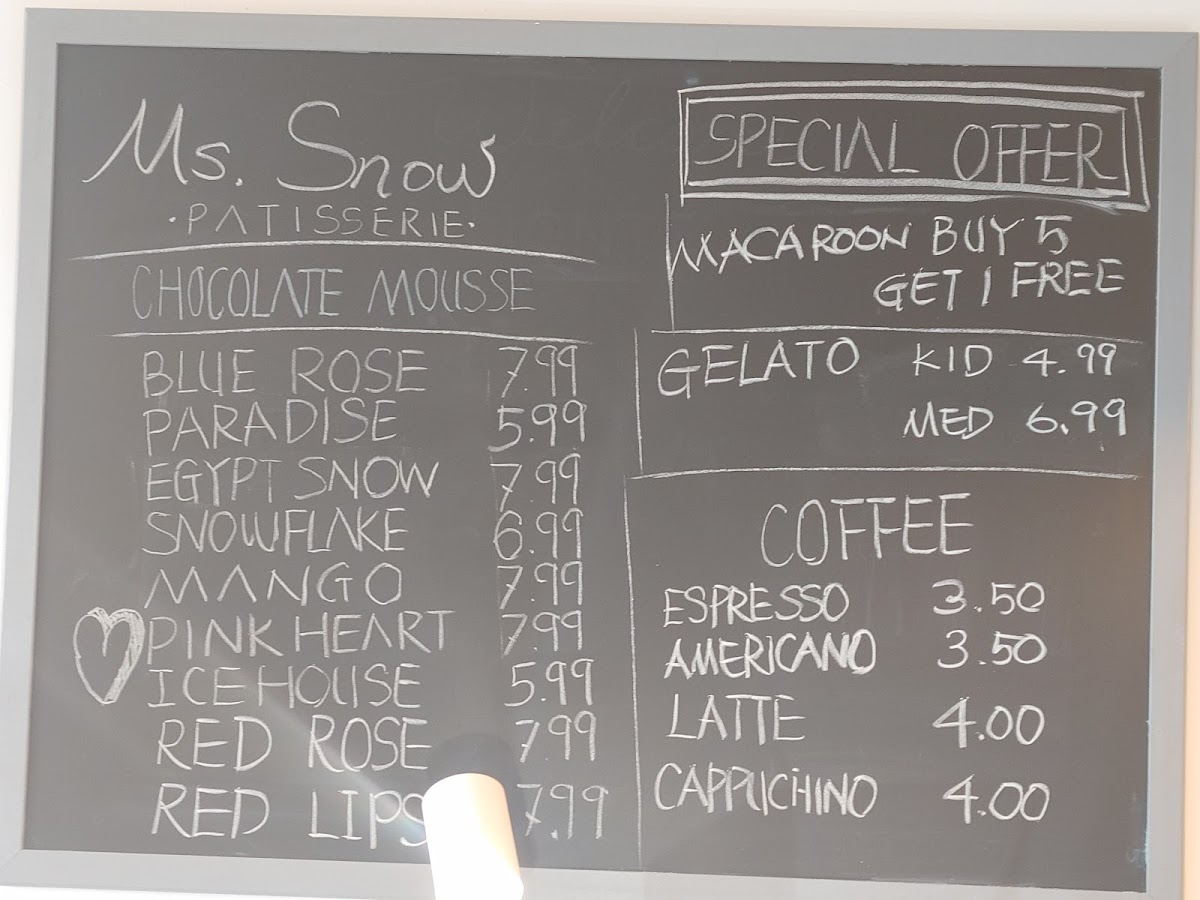 Ms. Snow
·PATISSERIE·
CHOCOLATE MOUSSE
BLUE ROSE 7.99
PARADISE 5.99
EGYPT SNOW 7.99
SNOWFLAKE 6.99
MANGO 7.99
PINK HEART 7.99
ICE HOUSE 5.99
RED ROSE 7.99
RED LIPS 7.99
SPECIAL OFFER
MACAROON BUY 5
GET 1 FREE
GELATO KID 4.99
MED 6.99
COFFEE
ESPRESSO 3.50
AMERICANO 3.50
LATTE 4.00
CAPPUCHINO 4.00